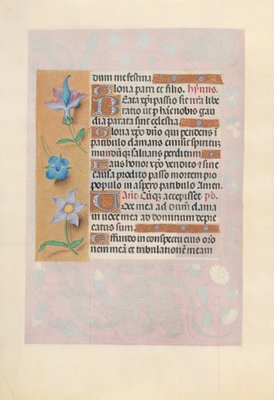 dum me festina.
Gloria patri et filio. hymnus
Beata xpi passio sit nra libe
ratio ut p hanc nobis gau
dia parata sint celestia.
Gloria xpo dno qui pendens i
patibulo clamans emisit spiritum
mundum salvans perditum
Laus honor xpo vendito et sine
causa prodito passo mortem pro
populo in aspero patibulo Amen.
Ant. Cumque accepisset ps.
Voce mea ad dnm clama
vi voce mea ad dominum depre
catus sum.
Effundo in conspectu eius oro
nem mea et tribulationem meam